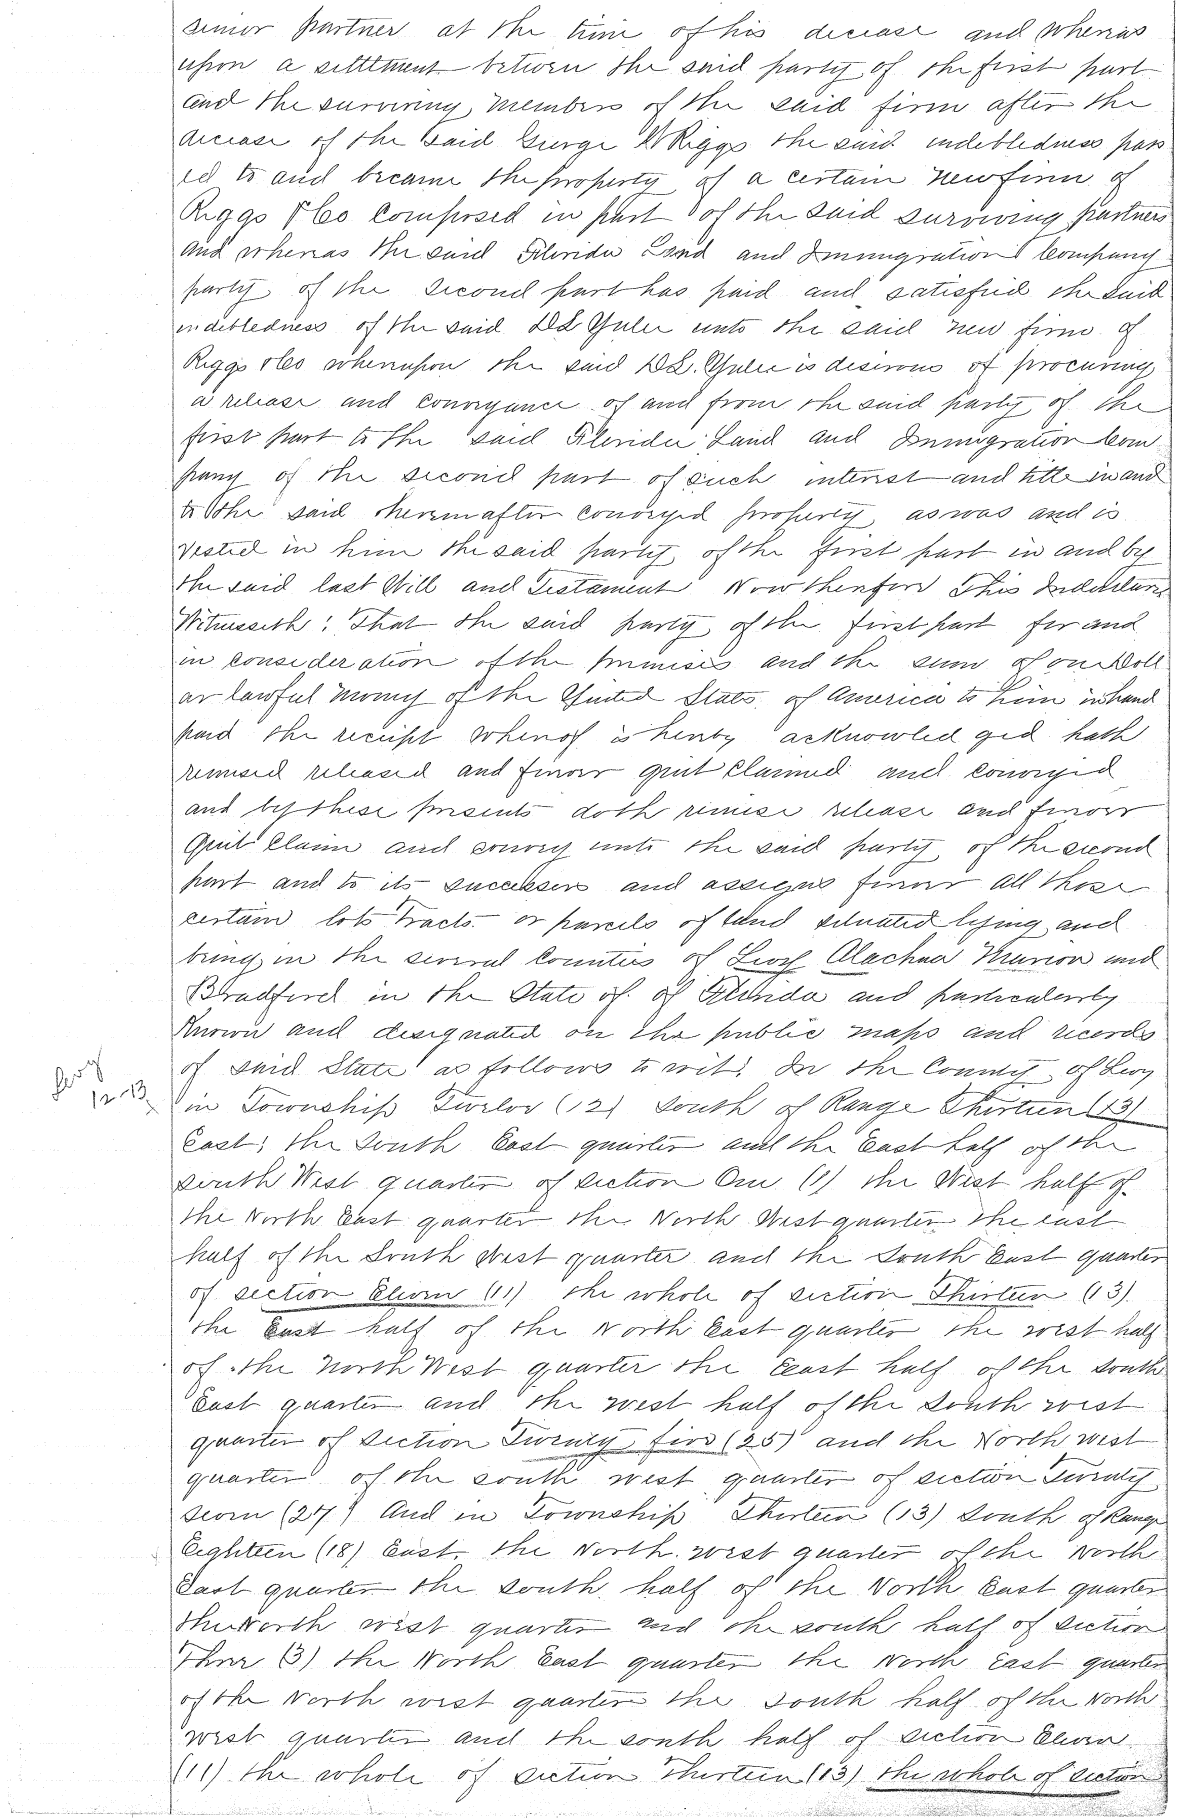 senior partner at the time of his decease and whereas
upon a settlment between the said party of the first part
and the surviving members of the said firm after the
decease of the said George W Riggs the said indebledness pass
ed to and became the property of a certain new firm of
Riggs & Co composed in part of the said surviving partners
and whereas the said Florida Land and Immigration Company
party of the second part has paid and satisfied the said
indebledness of the said D L Yulee unto the said new firm of
Riggs & Co whereupon the said D L. Yulee is desirous of procuring
a release and conveyance of and from the said party of the
first part to the said Florida Land and Immigration Com
pany of the second part of such interest and title in and
to the said hereinafter conveyed property as was and is
vested in him the said party of the first part in and by
the said last Will and Testament Now therefore This Indenture
Witnesseth: That the said party of the first part for and
in consideration of the premises and the sum of one Doll
ar lawful money of the United States of America to him in hand
paid the receipt whereof is hereby acknowled ged hath
remised released and forever quit claimed and conveyed
and by these presents doth remise release and forever
Quit Claim and convey unto the said party of the second
part and to its successors and assigns forever all those
certain lots tracts or parcels of land situated lying and
being in the several Counties of Levy Alachua Marion and
Bradford in the State of of Florida and particularly
Known and designated on the public maps and records
of said State as follows to wit: In the County of Levy
Levy
12-13
in Township Twelve (12) South of Range Thirteen (13)
East; the South East quarter and the East half of the
South West quarter of section One (1) the West half of
the North East quarter the North West quarter the east
half of the South West quarter and the South East quarter
of section Eleven (11) the whole of section Thirteen (13)
the East half of the North East quarter the west half
of the North West quarter the East half of the South
East quarter and the west half of the South west
quarter of section Twenty five (25) and the North west
quarter of the south west quarter of section Twenty
seven (27) And in Township Thirteen (13) South of Range
Eighteen (18) East the North west quarter of the North
East quarter the south half of the North East quarter
the North west quarter and the south half of section
Three (3) the North East quarter the North East quarter
of the North west quarter the South half of the North
west quarter and the south half of section Eleven
(11) the whole of section Thirteen (13) the whole of section